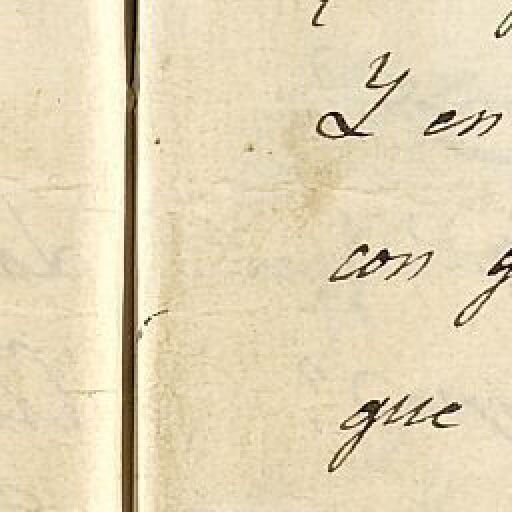 Y en
con
que